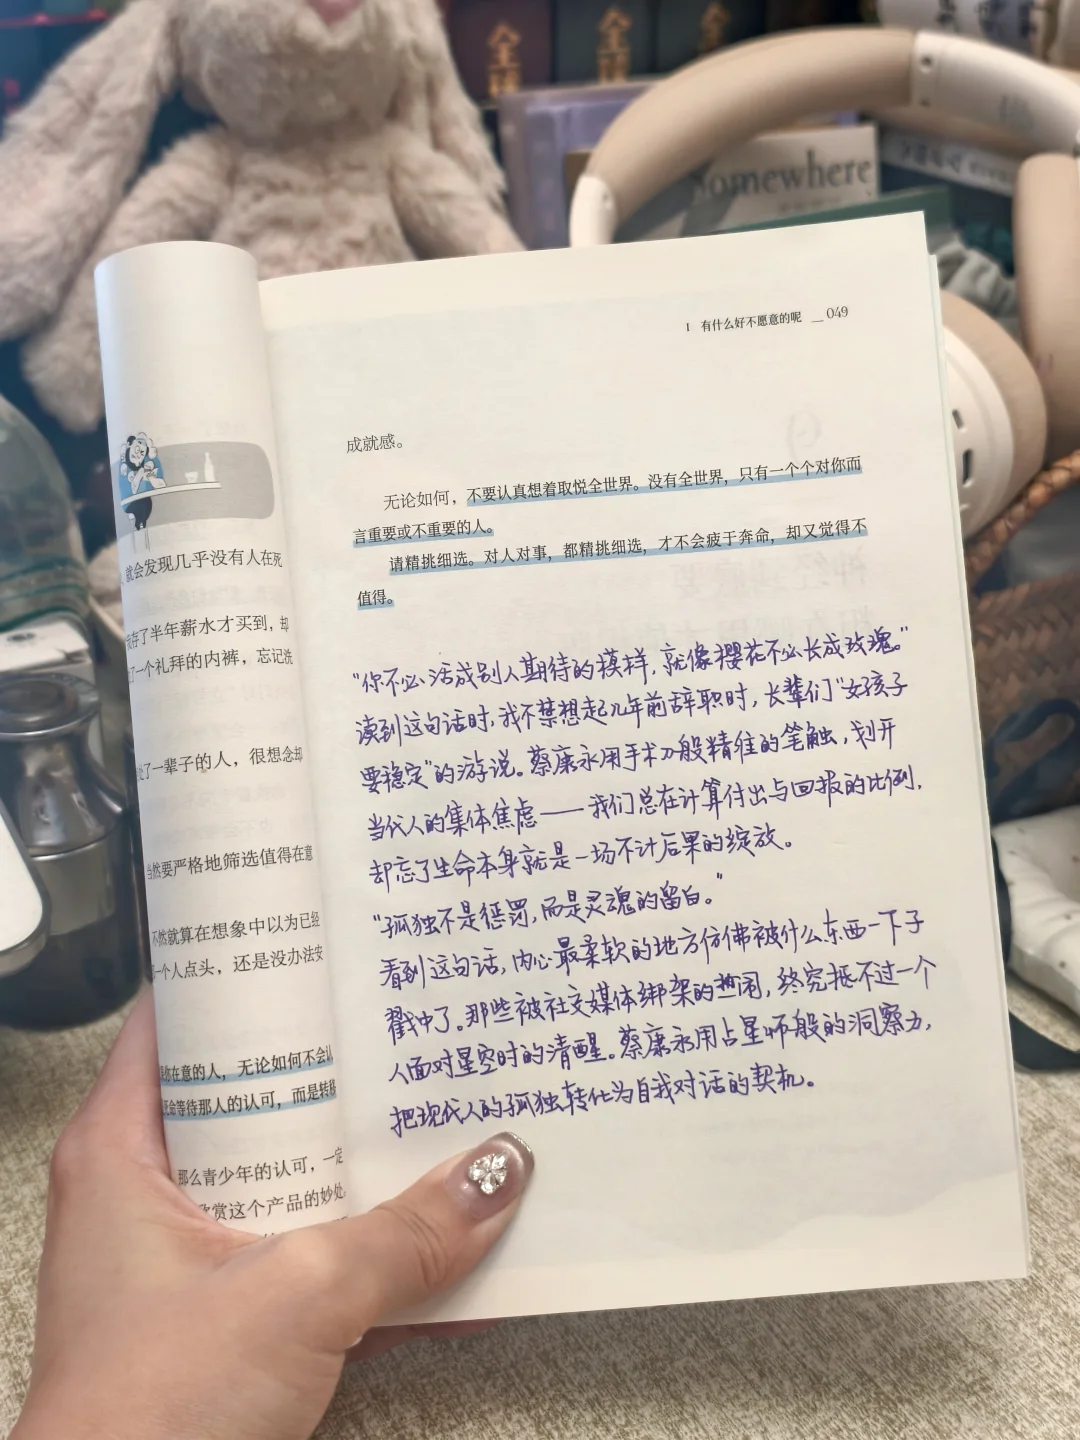 全译
全译
全
Somewhere
I 有什么好不愿意的呢 __ 049
成就感。
无论如何，不要认真想着取悦全世界。没有全世界，只有一个个对你而
言重要或不重要的人。
请精挑细选。对人对事，都精挑细选，才不会疲于奔命，却又觉得不
值得。
“你不必活成别人期待的模样，就像樱花不必长成玫瑰。”
读到这句话时，我不禁想起几年前辞职时，长辈们“女孩子
要稳定”的游说。蔡康永用手术刀般精准的笔触，划开
当代人的集体焦虑——我们总在计算付出与回报的比例，
却忘了生命本身就是一场不计后果的绽放。
“孤独不是惩罚，而是灵魂的留白。”
看到这句话，内心最柔软的地方仿佛被什么东西一下子
戳中了。那些被社交媒体绑架的热闹，终究抵不过一个
人面对星空时的清醒。蔡康永用占星师般的洞察力，
把现代人的孤独转化为自我对话的契机。
就会发现几乎没有人在死
存了半年薪水才买到，却
了一个礼拜的内裤，忘记洗
了一辈子的人，很想念却
当然要严格地筛选值得在意
不然就算在想象中以为已经
一个人点头，还是没办法安
你在意的人，无论如何不会认
死命等待那人的认可，而是转移
那么青少年的认可，一定
欣赏这个产品的妙处，